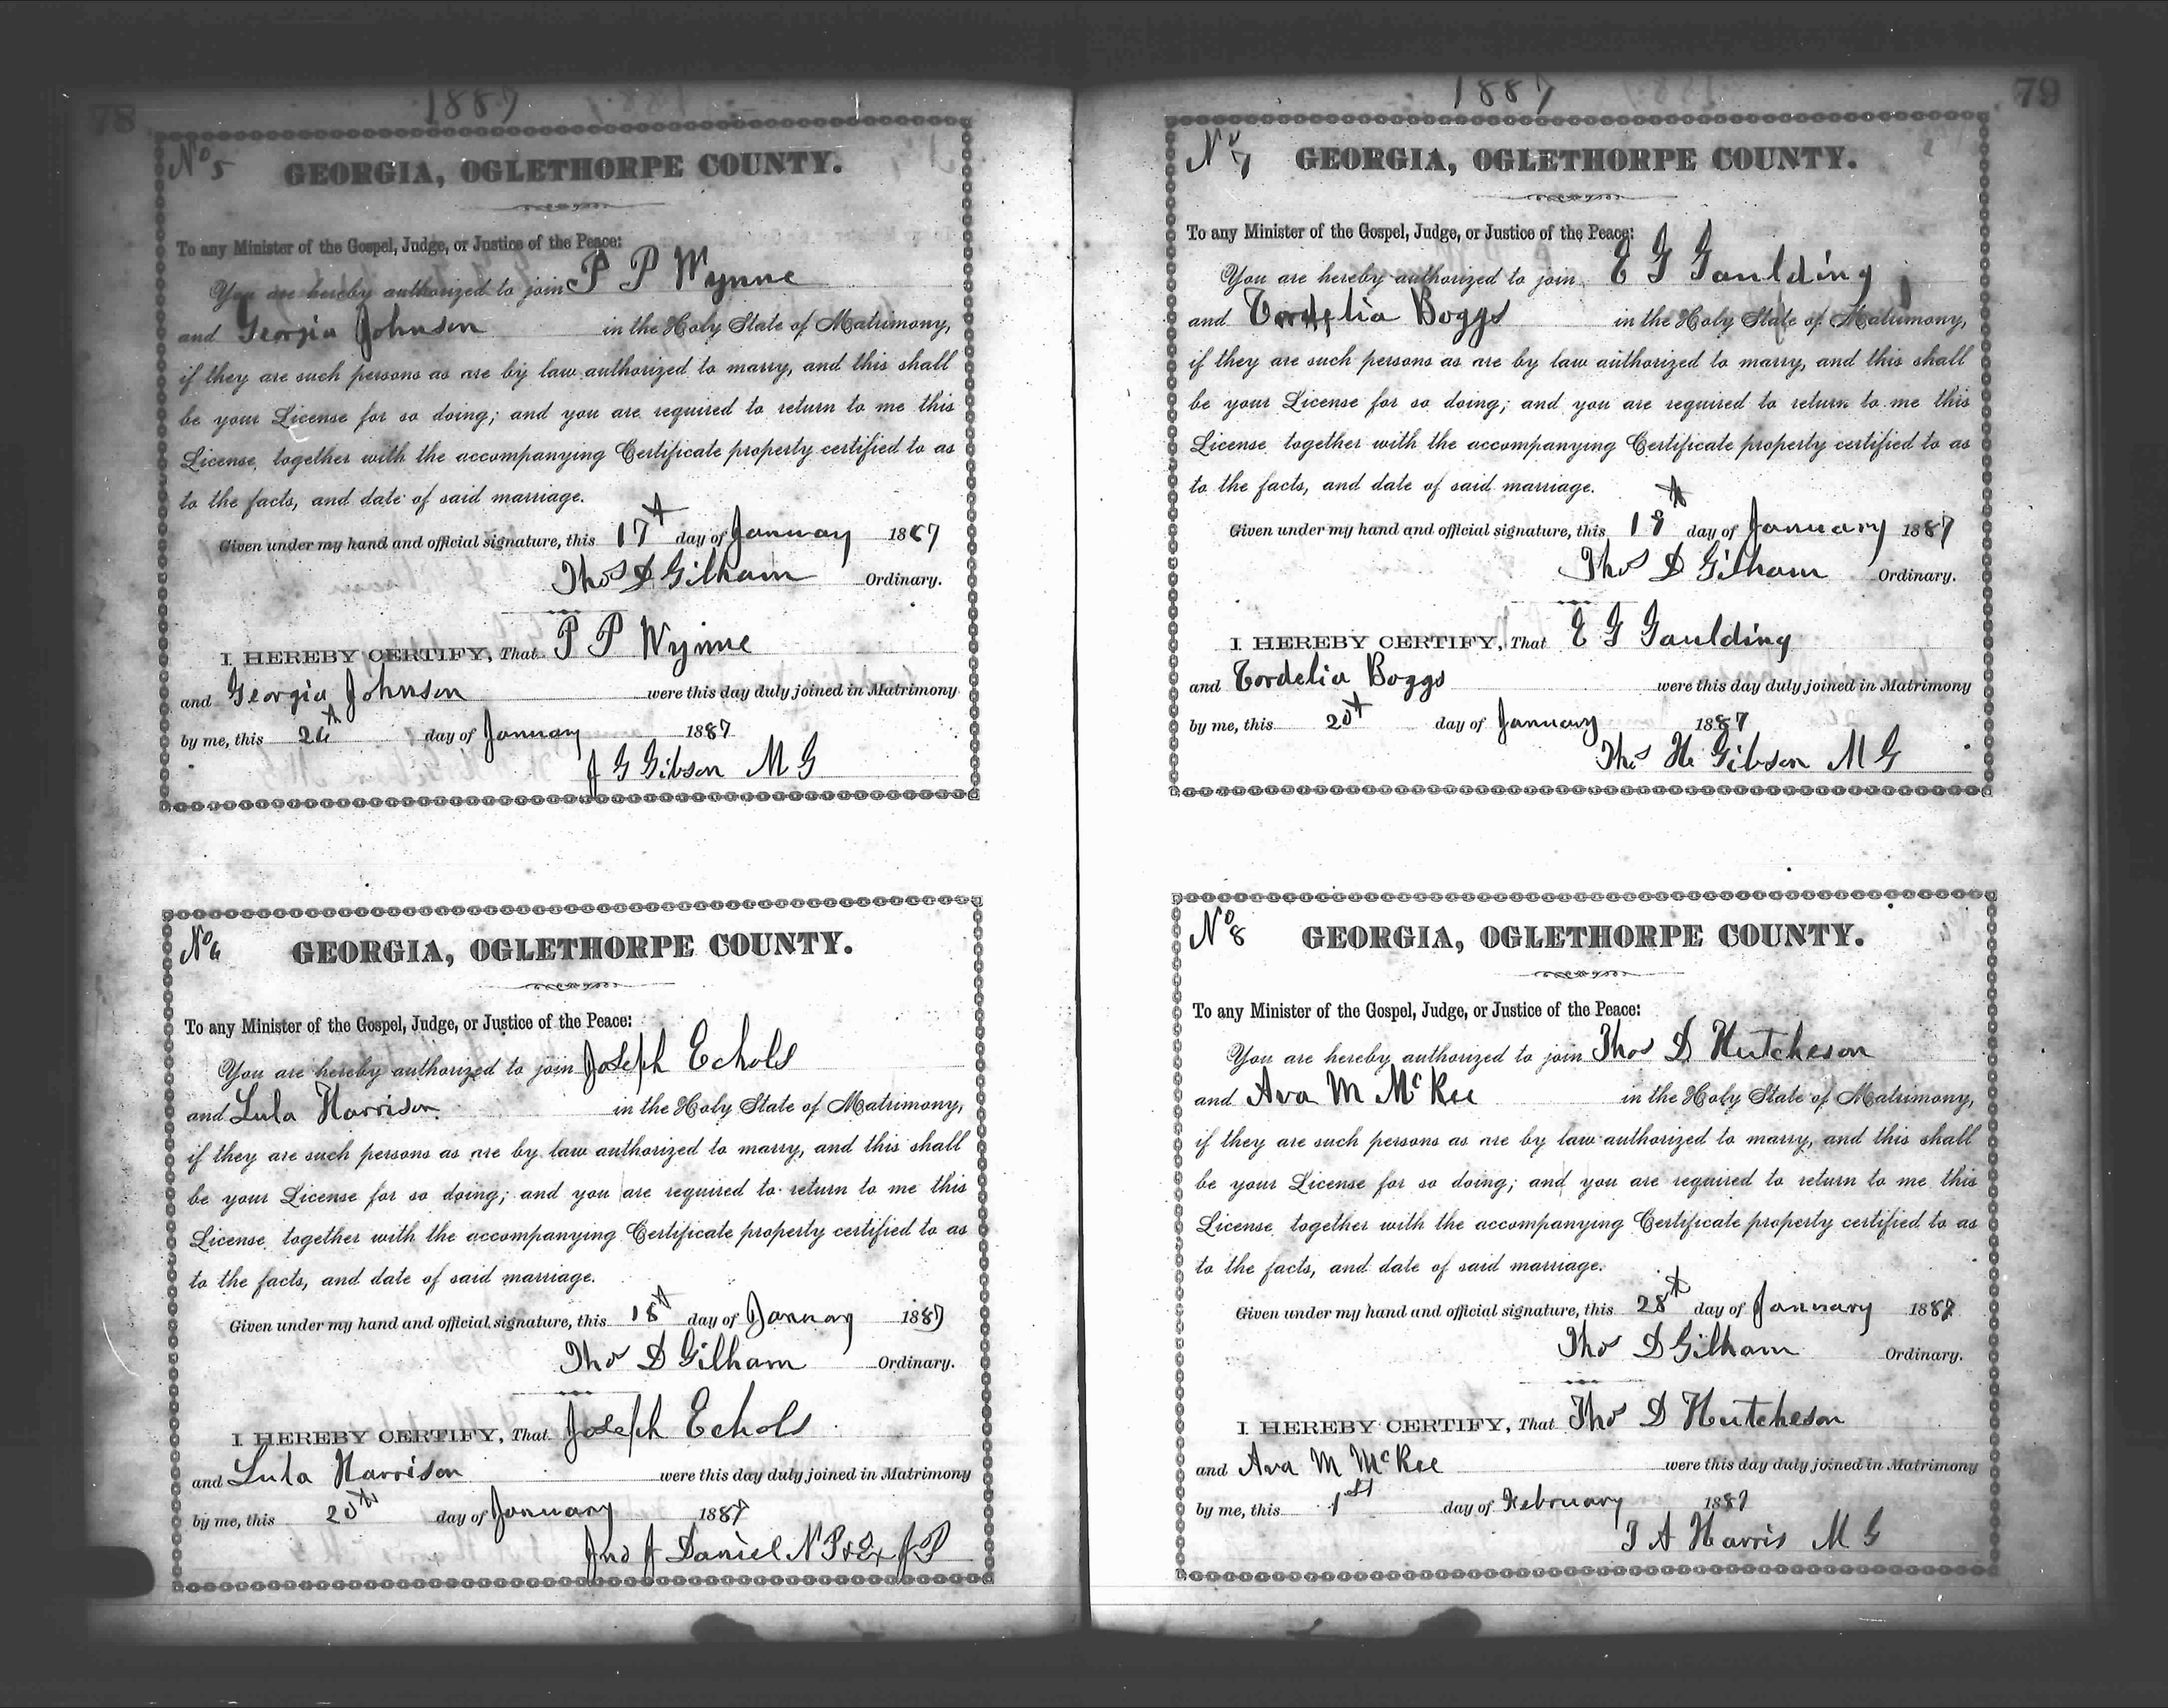 78
1887
No 5
GEORGIA, OGLETHORPE COUNTY.
To any Minister of the Gospel, Judge, or Justice of the Peace:
You are hereby authorized to join P P Wynne
and Georgia Johnson in the Holy State of Matrimony,
if they are such persons as are by law authorized to marry, and this shall
be your License for so doing; and you are required to return to me this
License, together with the accompanying Certificate property certified to as
to the facts, and date of said marriage.
Given under my hand and official signature, this 17th day of January 1887
Thos D Gilham Ordinary.
I HEREBY CERTIFY, That P P Wynne
and Georgia Johnson were this day duly joined in Matrimony
by me, this day of January 1887
J G Gibson M G
No 6
GEORGIA, OGLETHORPE COUNTY.
To any Minister of the Gospel, Judge, or Justice of the Peace:
You are hereby authorized to join Joseph Echols
and Lula Harrison in the Holy State of Matrimony,
if they are such persons as are by law authorized to marry, and this shall
be your License for so doing; and you are required to return to me this
License, together with the accompanying Certificate property certified to as
to the facts, and date of said marriage.
Given under my hand and official signature, this 18th day of January 1887
Thos D Gilham Ordinary.
I HEREBY CERTIFY, That Joseph Echols
and Lula Harrison were this day duly joined in Matrimony
by me, this 20th day of January 1887
Jno J Daniel N P & Ex J P
79
1887
No 7
GEORGIA, OGLETHORPE COUNTY.
To any Minister of the Gospel, Judge, or Justice of the Peace:
You are hereby authorized to join E G Gaulding
and Cordelia Boggs in the Holy State of Matrimony,
if they are such persons as are by law authorized to marry, and this shall
be your License for so doing; and you are required to return to me this
License, together with the accompanying Certificate property certified to as
to the facts, and date of said marriage.
Given under my hand and official signature, this 18th day of January 1887
Thos D Gilham Ordinary.
I HEREBY CERTIFY, That E G Gaulding
and Cordelia Boggs were this day duly joined in Matrimony
by me, this 20th day of January 1887
Thos H Gibson M G
No 8
GEORGIA, OGLETHORPE COUNTY.
To any Minister of the Gospel, Judge, or Justice of the Peace:
You are hereby authorized to join Thos D Hutcheson
and Ava M McKee in the Holy State of Matrimony,
if they are such persons as are by law authorized to marry, and this shall
be your License for so doing; and you are required to return to me this
License, together with the accompanying Certificate property certified to as
to the facts, and date of said marriage.
Given under my hand and official signature, this 28th day of January 1887
Thos D Gilham Ordinary.
I HEREBY CERTIFY, That Thos D Hutcheson
and Ava M McKee were this day duly joined in Matrimony
by me, this 1st day of February 1887
T A Harris M G